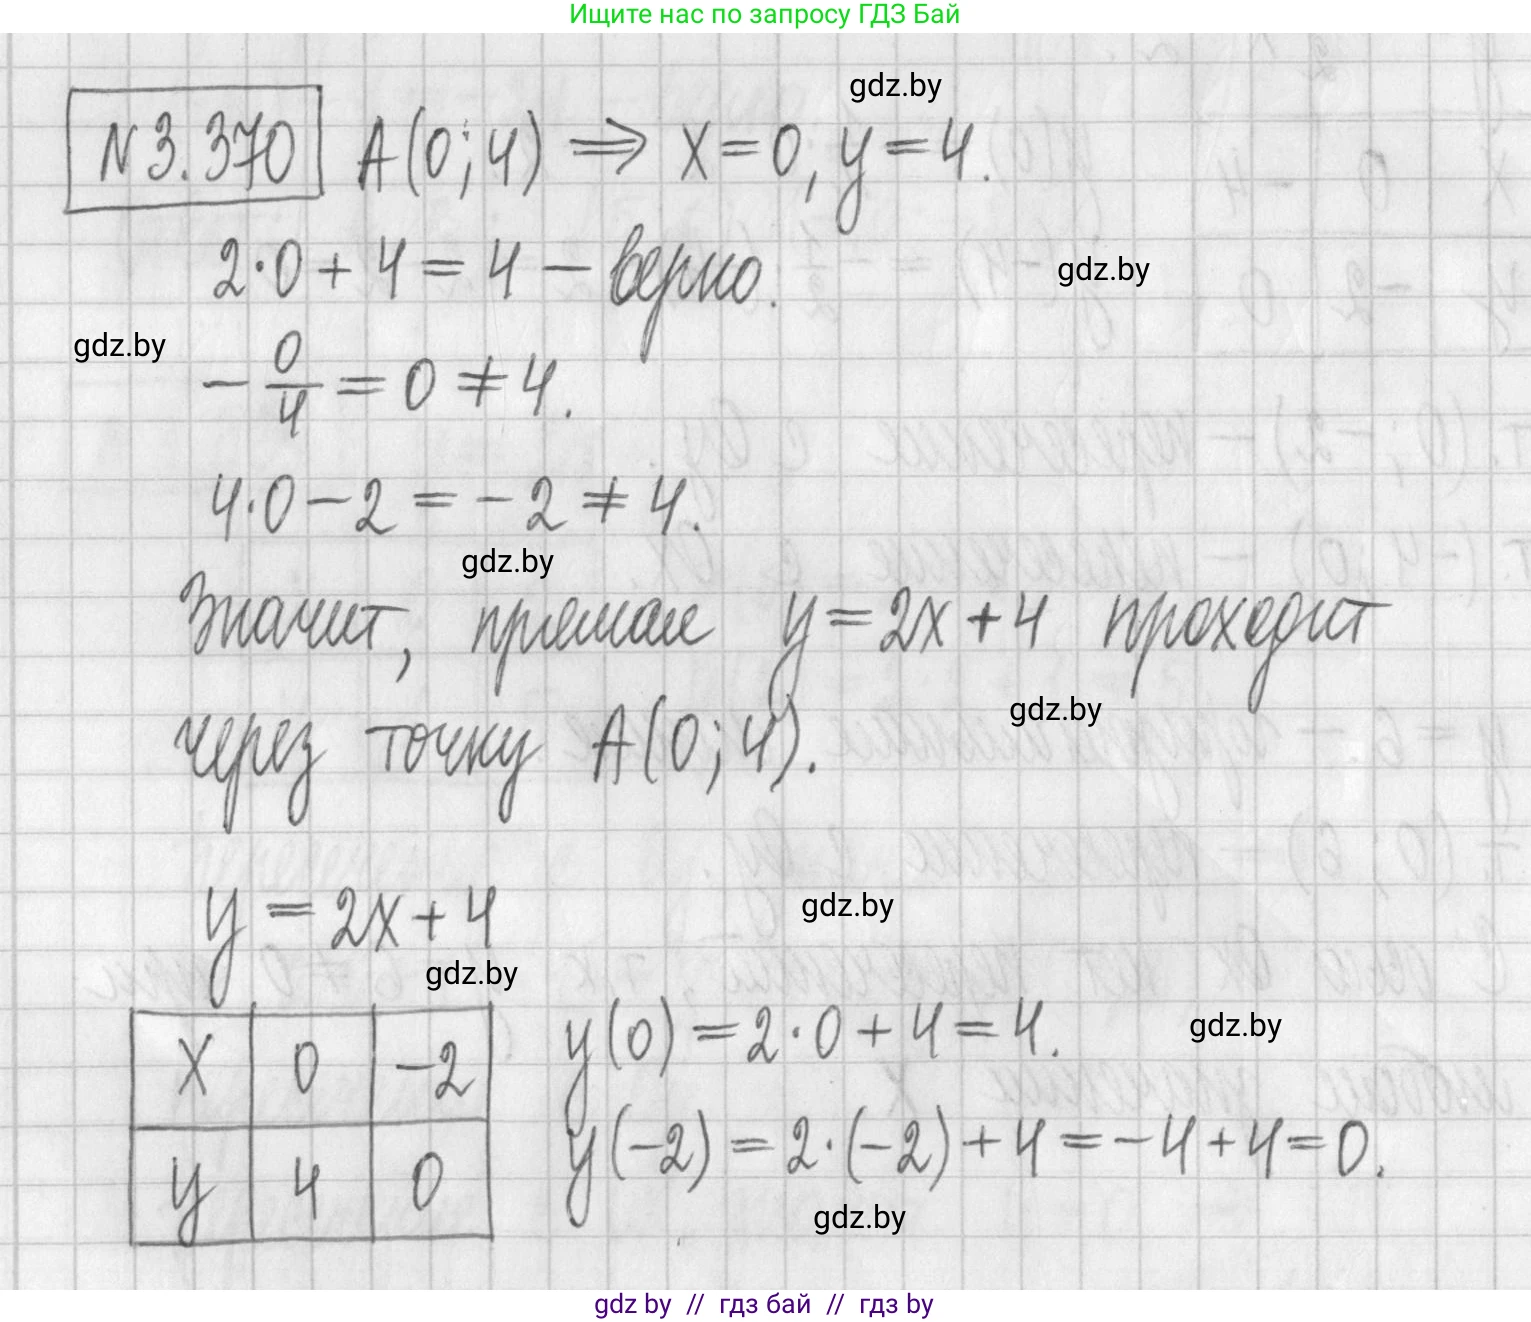 Ищите нас по запросу ГДЗ Бай
gdz.by
№3.370 A(0;4) ⇒ x=0, y=4.
2·0+4=4 – верно.
gdz.by
gdz.by
-0/4=0≠4.
4·0-2=-2≠4.
gdz.by
Значит, прямая y=2x+4 проходит
gdz.by
через точку A(0;4).
y=2x+4
gdz.by
gdz.by
x 0 -2
y(0)=2·0+4=4.
gdz.by
y 4 0
y(-2)=2·(-2)+4=-4+4=0.
gdz.by
gdz by // гдз бай // гдз by